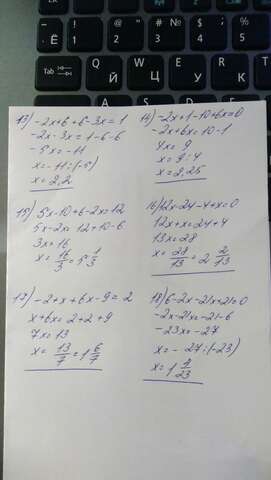 Ё ! 1 " 2 № 3 ; 4 % 5
Tab Й Ц У К
13) -2x+6+6-3x=1
-2x-3x=1-6-6
-5x=-11
x=-11:(-5)
x=2,2
14) -2x+1-10+6x=0
-2x+6x=10-1
4x=9
x=9:4
x=2,25
15) 5x-10+6-2x=12
5x-2x=12+10-6
3x=16
x=16/3=5 1/3
16) 12x-24-4+x=0
12x+x=24+4
13x=28
x=28/13=2 2/13
17) -2+x+6x-9=2
x+6x=2+2+9
7x=13
x=13/7=1 6/7
18) 6-2x-21x+21=0
-2x-21x=-21-6
-23x=-27
x=-27:(-23)